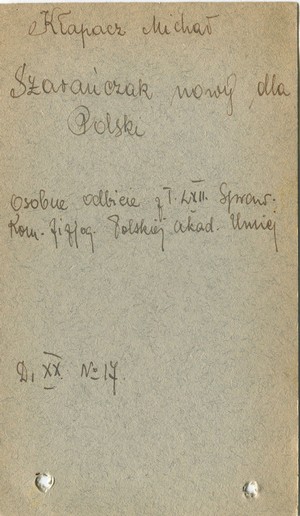 Kłapacz Michał
Szarańczak nowy dla
Polski
Osobne odbicie z T. LXII. Spraw.
Kom. fizjog. Polskiej Akad. Umiej
D. XX. No 17.